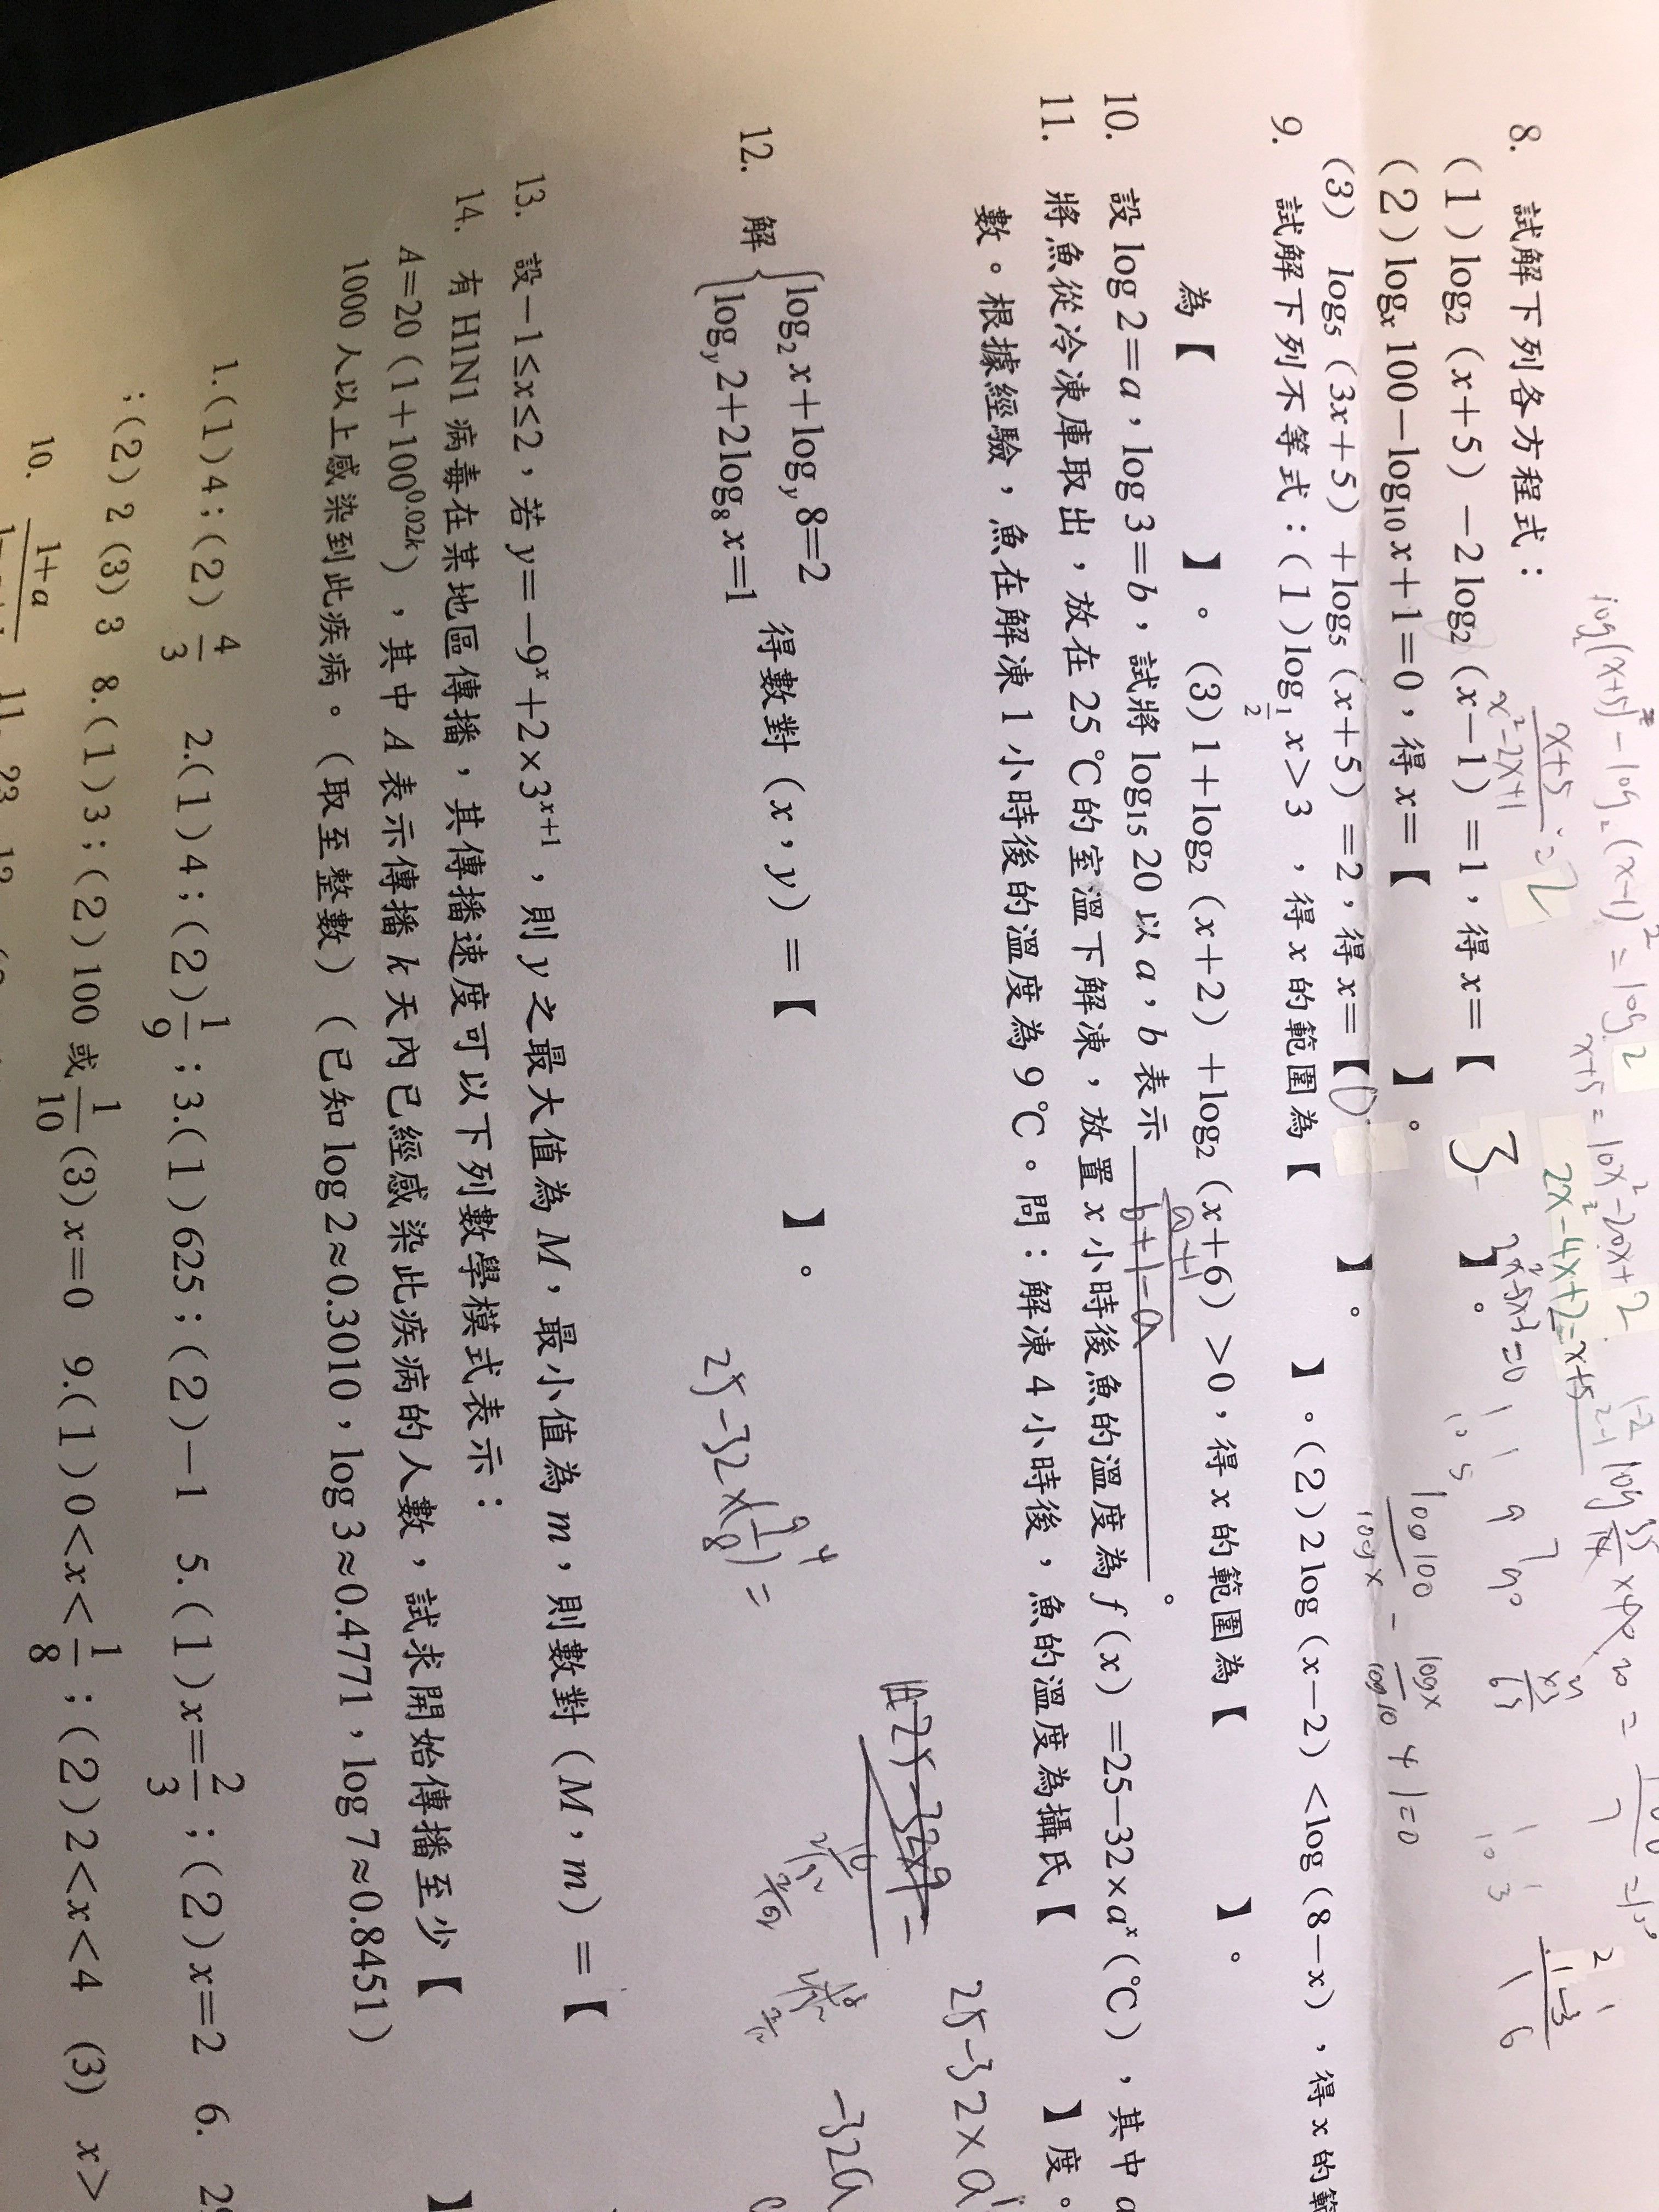 8. 試解下列各方程式：
(1) log₂(x+5)－2log₂(x－1)＝1，得x＝【 3 】。
(2) logₓ100－log₁₀x＋1＝0，得x＝【 】。
(3) log₅(3x+5)＋log₅(x+5)＝2，得x＝【0 】。
9. 試解下列不等式：(1) log_{1/2} x＞3，得x的範圍為【 】。(2) 2log(x－2)＜log(8－x)，得x的範
為【 】。(3) 1＋log₂(x+2)＋log₂(x+6)＞0，得x的範圍為【 】。
10. 設log2＝a，log3＝b，試將log₁₅20以a，b表示 a+1/b+1-a 。
11. 將魚從冷凍庫取出，放在25℃的室溫下解凍，放置x小時後魚的溫度為f(x)＝25－32×aˣ(℃)，其中a
數。根據經驗，魚在解凍1小時後的溫度為9℃。問：解凍4小時後，魚的溫度為攝氏【 】度。
12. 解{log₂x＋log_y8＝2
log_y2＋2log₈x＝1 得數對(x，y)＝【 】。
13. 設－1≤x≤2，若y＝－9ˣ＋2×3ˣ⁺¹，則y之最大值為M，最小值為m，則數對(M，m)＝【
14. 有H1N1病毒在某地區傳播，其傳播速度可以下列數學模式表示：
A＝20(1＋100^{0.02k})，其中A表示傳播k天內已經感染此疾病的人數，試求開始傳播至少【 】
1000人以上感染到此疾病。(取至整數)(已知log2≈0.3010，log3≈0.4771，log7≈0.8451)
1.(1)4；(2)4/3 2.(1)4；(2)1/9；3.(1)625；(2)－1 5.(1)x＝2/3；(2)x＝2 6.
；(2)2(3)3 8.(1)3；(2)100或1/10(3)x＝0 9.(1)0＜x＜1/8；(2)2＜x＜4 (3) x＞
10. 1+a
log₂(x+5) - log₂(x-1)² = log₂2
x+5/x²-2x+1 = 2
x+5 = 10x²-20x+2
2x²-4x+2=x+5
2x²-5x-3=0
2 1
1 -3
1 6
log100/logx - logx/log10 + 1=0
25-32×
25-32×a
-32a